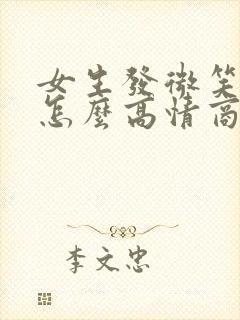 女生發微笑
怎麼高情商
李文忠